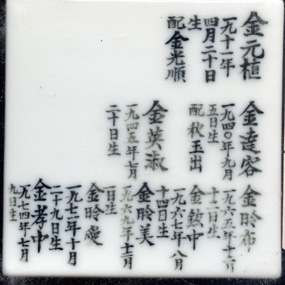 金元植
一九十一年
四月二十日
生
配金光順
金達容
一九四〇年九月
五日生
配秋玉出
金英淑
一九四五年七月
二十日生
金昤布
一九六五年十一月
十二日生
金欽中
一九六七年八月
十四日生
金昤美
一九六九年十二月
一日生
金昤慶
一九七一年十月
二十九日生
金孝中
一九七四年七月
九日生